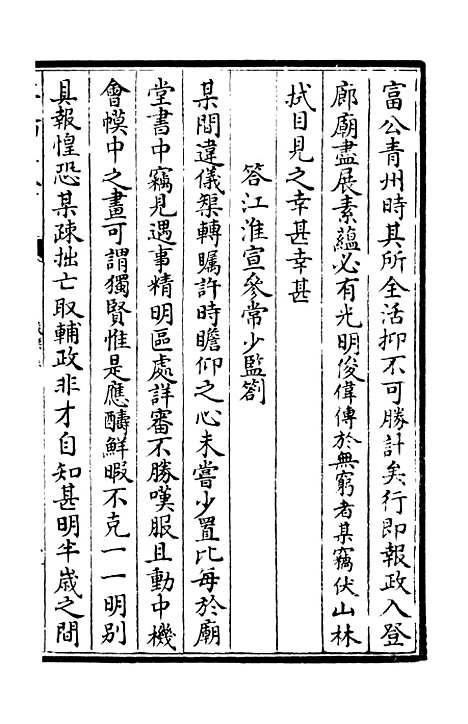 富公青州時其所全活抑不可勝計矣行即報政入登
廊廟盡展素蘊必有光明俊偉傳於無窮者某竊伏山林
拭目見之幸甚幸甚
答江淮宣參常少監劄
某間違儀榘轉矚許時瞻仰之心未嘗少置比每於廟
堂書中竊見遇事精明區處詳審不勝嘆服且動中機
會幙中之畫可謂獨賢惟是應酬鮮暇不克一一明别
具報惶恐某疎拙亡取輔政非才自知甚明半歲之間